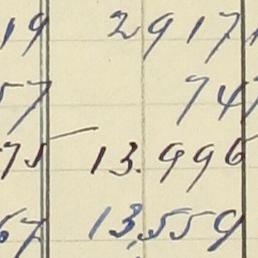 19 2917
57 747
75 13.996
67 13,559